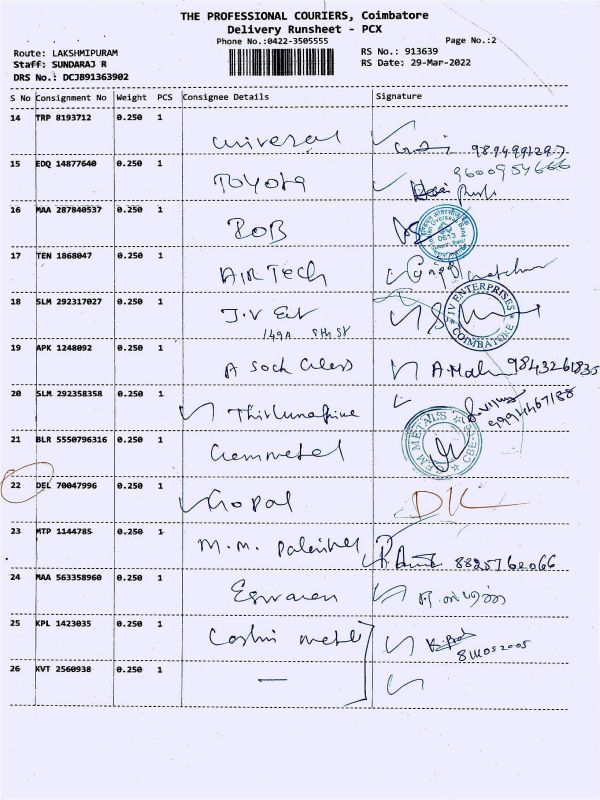 THE PROFESSIONAL COURIERS, Coimbatore
Delivery Runsheet - PCX
Phone No.:0422-3505555 Page No.:2
Route: LAKSHMIPURAM RS No.: 913639
Staff: SUNDARAJ R RS Date: 29-Mar-2022
DRS No.: DCJB91363902
S No Consignment No Weight PCS Consignee Details Signature
14 TRP 8193712 0.250 1 Universal
15 EDQ 14877640 0.250 1 TOYOTA 9600954666
16 MAA 287840537 0.250 1 0613
17 TEN 1868047 0.250 1 AIRTECH
18 SLM 292317027 0.250 1 J.V Ent JV ENTERPRISES COIMBATORE
149A 8th St
19 APK 1248092 0.250 1 A 9843261835
20 SLM 292358358 0.250 1 9994467188
21 BLR 5550796316 0.250 1 Gemmetal METALS CBE
22 DEL 70047996 0.250 1 Gopal DK
23 MTP 1144785 0.250 1 M.M. 8825762066
24 MAA 563358960 0.250 1 Eswaran
25 KPL 1423035 0.250 1
26 KVT 2560938 0.250 1 —